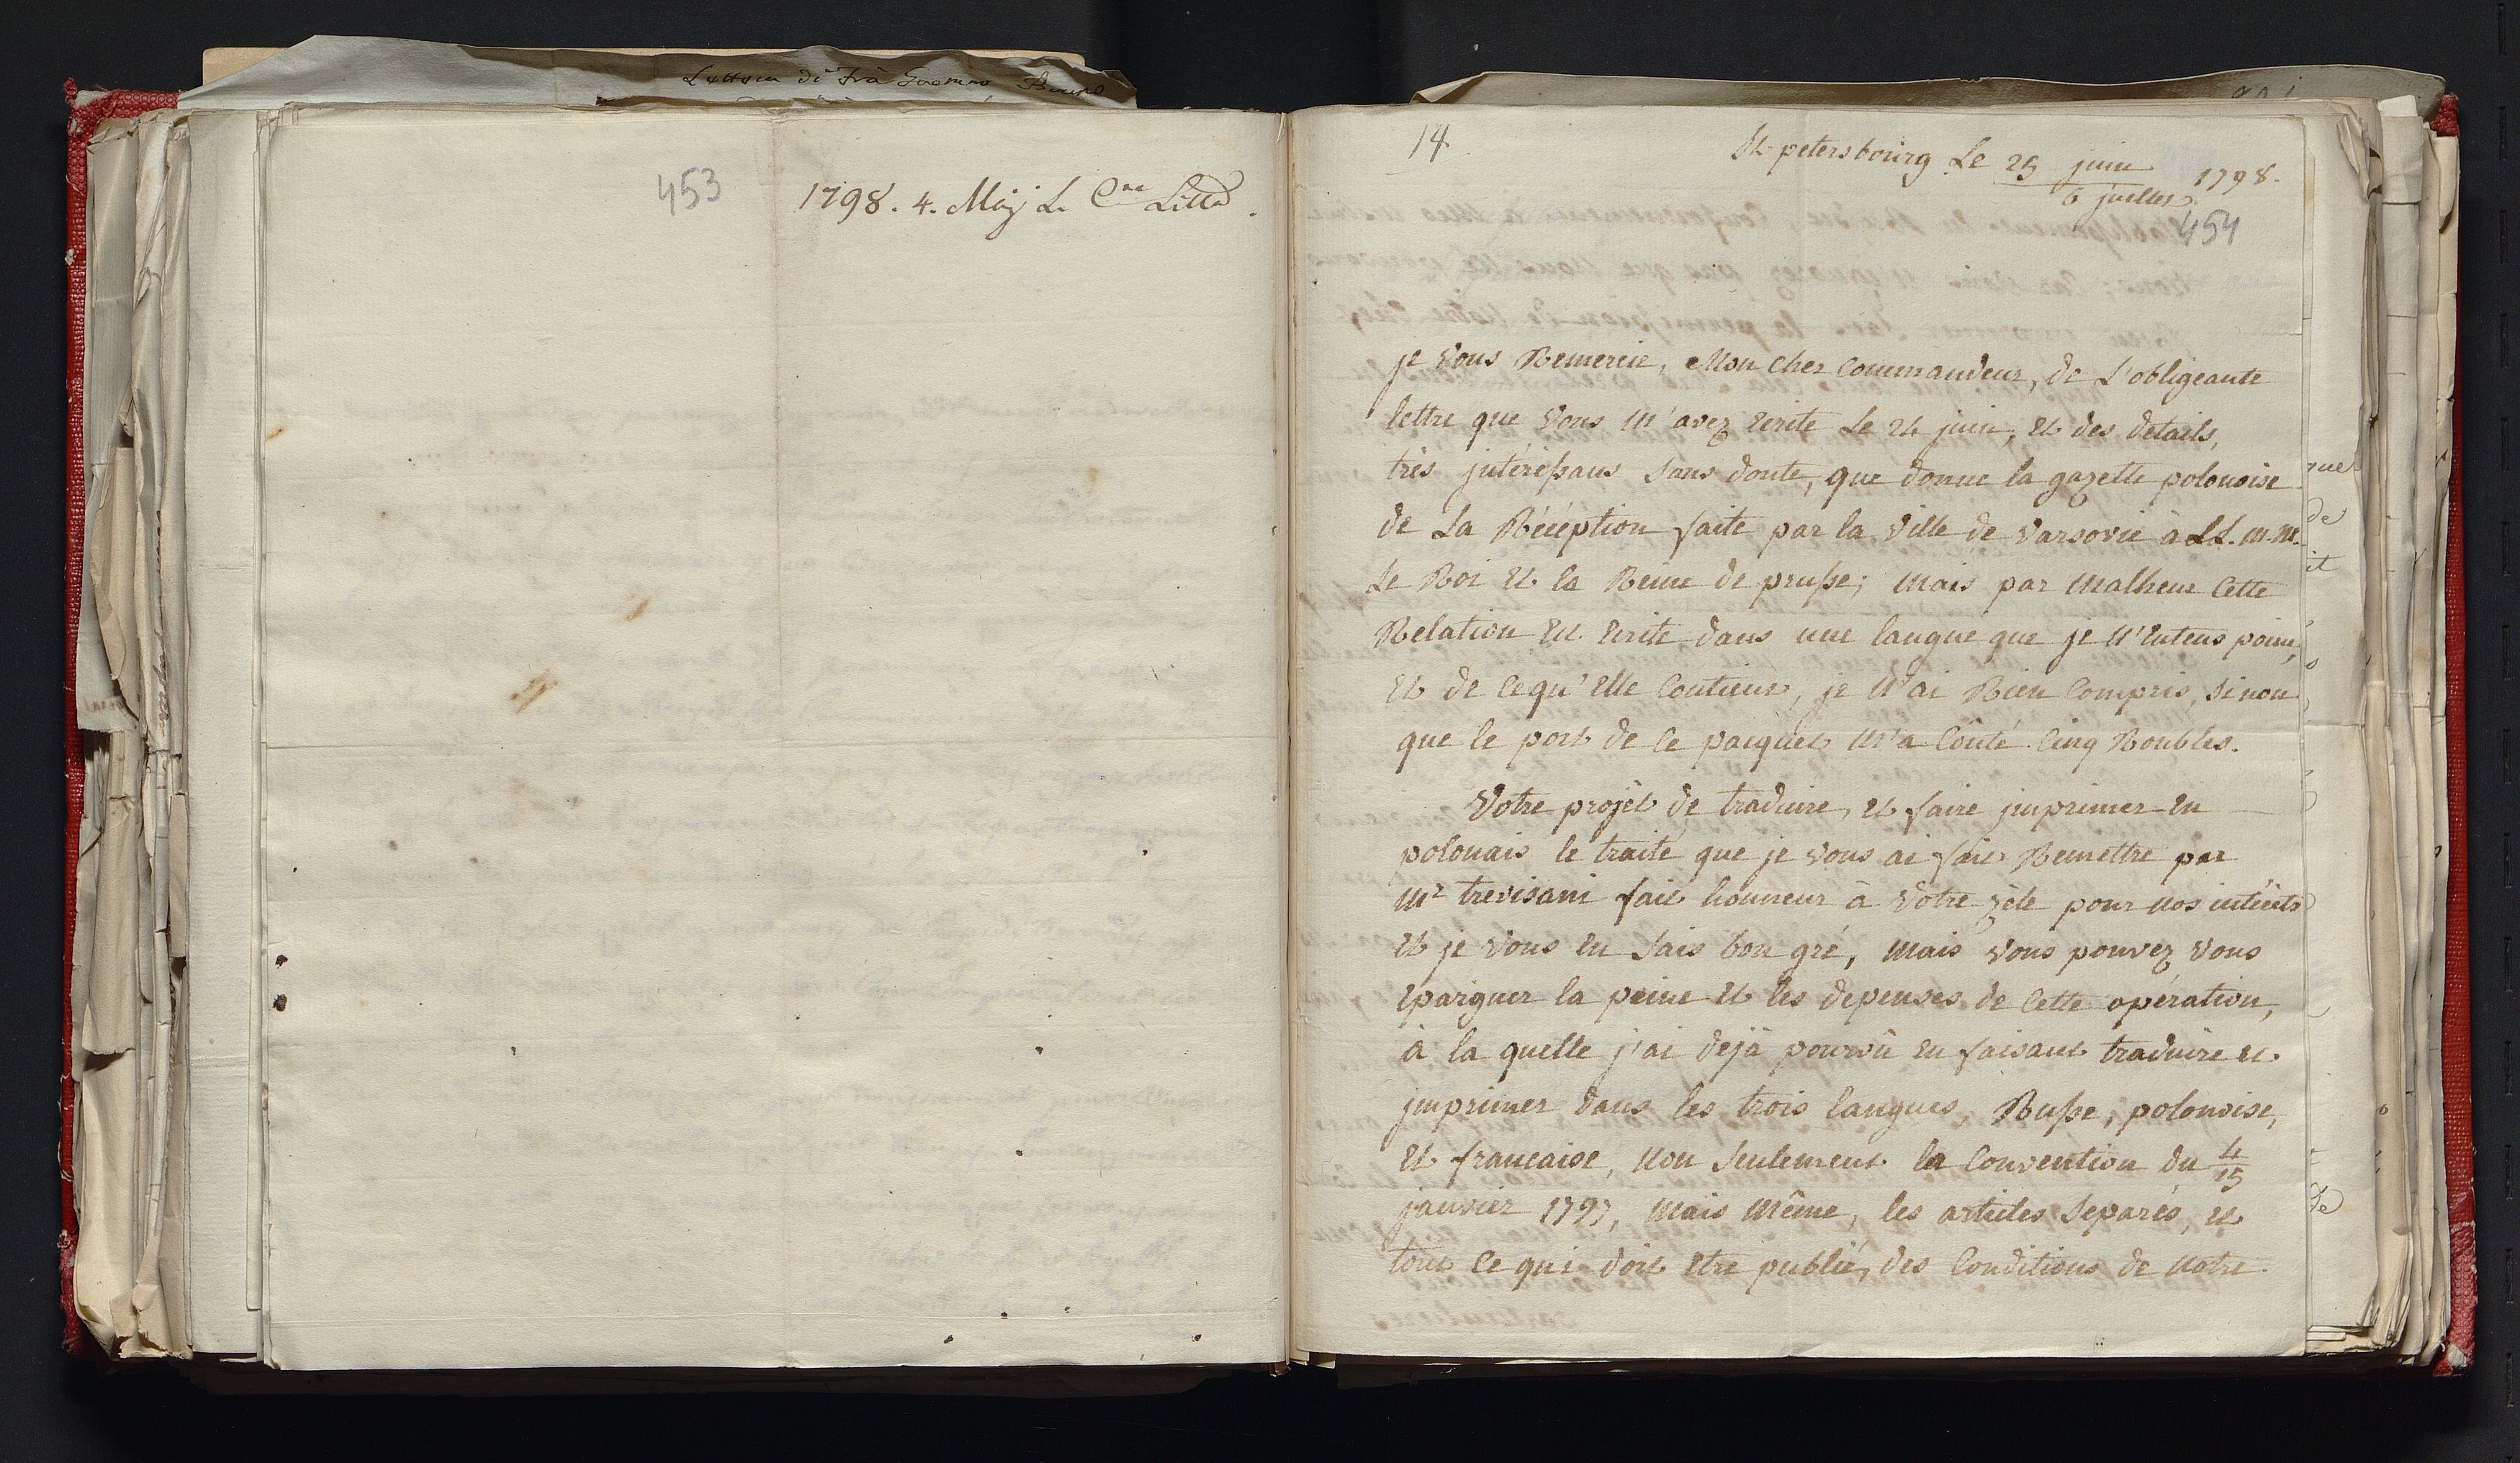 453
1798. 4. Maj L. Cne Litta.
14
St petersbourg Le 25 juin
6 juillet 1798.
454
je vous Remercie, Mon cher Commandeur, de L'obligeante
lettre que vous m'avez Ecrite Le 24 juin, Et des details,
très jntéressans sans doute, que donne la gazette polonoise
de La Réception faite par la ville de Varsovie à LL. M.M.
Le Roi Et la Reine de prusse; mais par malheur Cette
Relation Est Ecrite dans une langue que je N'Entens point,
Et de Cequ'Elle Contient, je N'ai Rien Compris, sinon
que le port de Ce pacquet M'a Coûté Cinq Roubles.
Votre projet de traduire, Et faire jmprimer En
polonais le traité que je vous ai fait Remettre par
Mr trevisani fait honneur à votre zèle pour Nos intérêts
Et je vous En sais bon gré, mais vous pouvez vous
Epargner la peine Et les depenses de Cette opération,
à la quelle j'ai déjà pourvû En faisant traduire Et
jmprimer dans les trois langues, Russe, polonoise,
Et francaise, Non seulement la Convention du 4/15
janvier 1797, mais Même, les articles separés, Et
tout Ce qui doit Etre publié, des Conditions de Notre